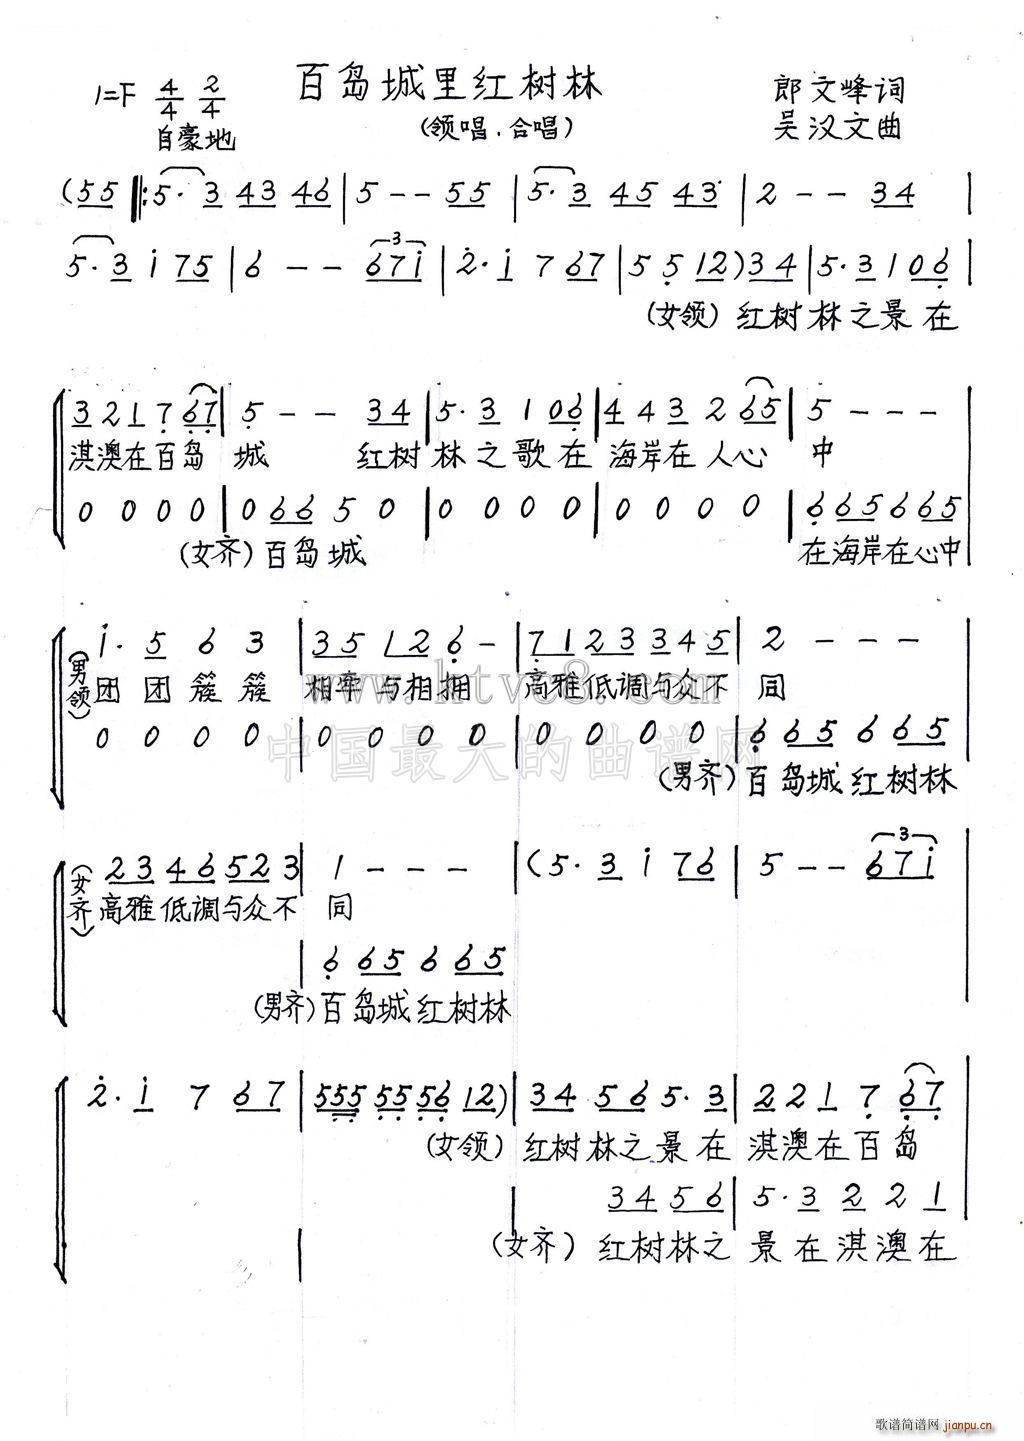 百岛城里红树林
(领唱、合唱)
1=F 4/4 2/4
自豪地
郎文峰词
吴汉文曲
(55 ‖: 5·3 43 46 | 5 - - 55 | 5·3 45 43 | 2 - - 34 |
5·3 i 75 | 6 - - 67i | 2·i 7 67 | 5 5 12) 34 | 5·3 1 06 |
(女领) 红树林之景在
3 2 1 7 67 | 5 - - 34 | 5·3 1 06 | 4 4 3 2 65 | 5 - - -
淇澳在百岛 城 红树林之歌在 海岸在人心 中
0 0 0 0 | 0 66 5 0 | 0 0 0 0 | 0 0 0 0 | 6 65 6 65
(女齐) 百岛城 在海岸在心中
i·5 6 3 | 35 12 6 - | 71 23 34 5 | 2 - - -
(男领) 团团簇簇 相牵与相拥 高雅低调与众不 同
0 0 0 0 | 0 0 0 0 | 0 0 0 0 | 6 65 6 65
(男齐) 百岛城红树林
www.hrtvc8.com
中国最大的曲谱网
23 46 52 3 | 1 - - - | (5·3 i 76 | 5 - - 67i
(女齐) 高雅低调与众不 同
6 65 6 65
(男齐) 百岛城红树林
2·i 7 67 | 555 55 56 12) | 34 56 5·3 | 2 2 1 7 67
(女领) 红树林之景在 淇澳在百岛
34 56 | 5·3 2 2 1
(女齐) 红树林之 景在淇澳在
歌谱简谱网 jianpu.cn